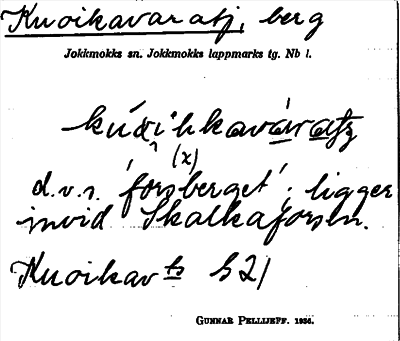 Kuoikavaratj, berg
Jokkmokks sn. Jokkmokks lappmarks tg. Nb l.
(x)
d.v.s. 'forsberget'; ligger
invid Skalkaforsen.
Kuoikav ts b 21
GUNNAR PELLIJEFF. 1936.